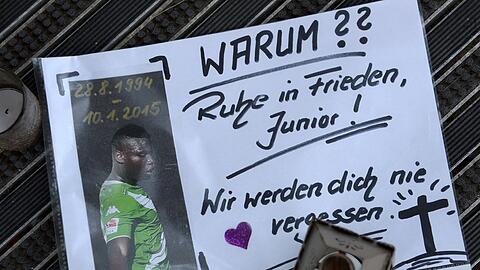 WARUM ??
28.8.1994
-
10.1.2015
Ruhe in Frieden,
Junior !
Wir werden dich nie
vergessen.